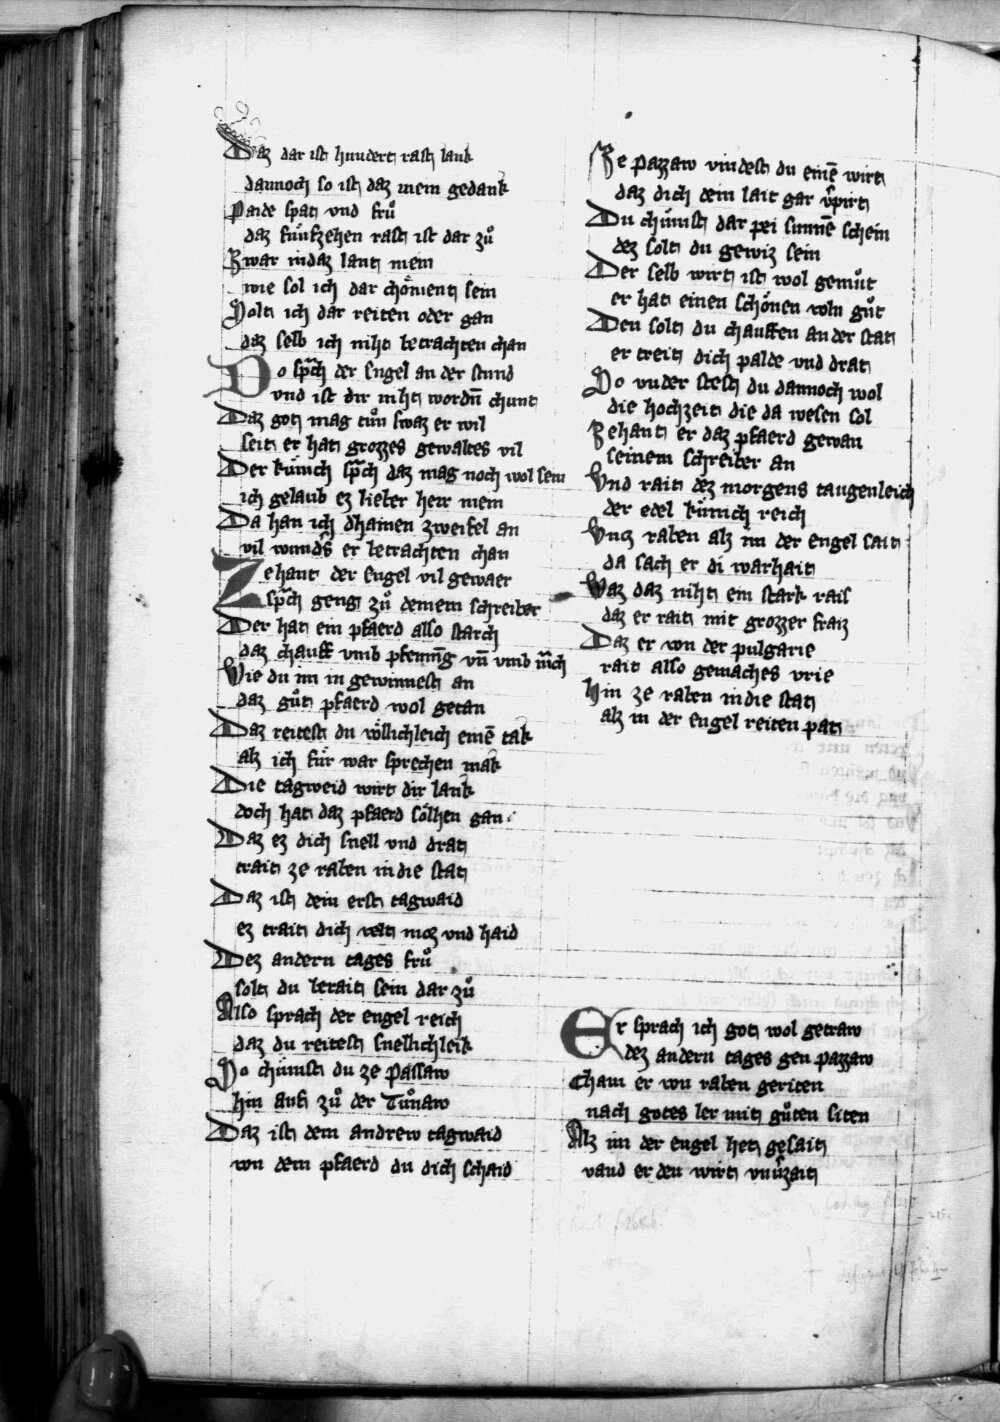 Daz dar ist hundert rast lank
dannoch so ist daz mein gedank
Paide spat vnd frů
daz fünfzehen rast ist dar zů
Zwar indaz lant mein
wie sol ich dar chöment sein
Solt ich dar reiten oder gan
daz selb ich niht betrachten chan
Do sprach der engel an der stund
vnd ist dir niht wordn̄ chunt
Daz got mag tůn swaz er wil
seit er hat grozzes gewaltes vil
Der künich sprach daz mag noch wol sein
ich gelaub ez lieber herr mein
Da han ich dhainen zweifel an
vil wunders er betrachten chan
Zehant der engel vil gewaer
sprach geng zů deinem schreiber
Der hat ein pfaerd also starch
daz chauff vmb pfennīg vn̄ vmb march
Wie du im in gewinnest an
daz gůt pfaerd wol getan
Daz reitest du völlichleich einē tak
alz ich für war sprechen mak
Die tagweid wirt dir lank
doch hat daz pfaerd sölhen gank
Daz ez dich snell vnd drat
trait ze raben indie stat
Daz ist dein erst tagwaid
ez trait dich velt moz vnd haid
Dez andern tages frů
solt du berait sein dar zů
Also sprach der engel reich
daz du reitest snellichleik
So chümst du ze Passaw
hin auf zů der Tůnaw
Daz ist dein andrew tagwaid
von dem pfaerd du dich schaid
Ze pazzaw vindest du einē wirt
daz dich dein lait gar v̄pirt
Du chümst dar pei sunnē schein
dez solt du gewiz sein
Der selb wirt ist wol gemůt
er hat einen schönen voln gůt
Den solt du chauffen an der stat
er treit dich palde vnd drat
So vnder stest du dannoch wol
die hochzeit die da wesen sol
Zehant er daz pfaerd gewan
seinem schreiber an
Vnd rait dez morgens taugenleich
der edel künich reich
Vncz raben alz im der engel sait
da sach er di warhait
Waz daz niht ein stark rais
daz er rait mit grozzer fraiz
Daz er von der pulgarie
rait also gemaches vrie
Hin ze raben indie stat
alz in der engel reiten pat
Er sprach ich got wol getraw
dez andern tages gen pazzaw
Cham er von raben geriten
nach gotes ler mit gůten siten
Alz im der engel het gesait
vand er den wirt vnuerzait